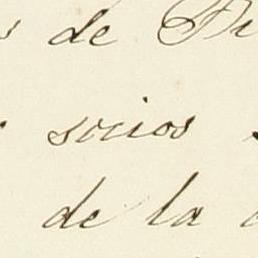 de
socios
de la